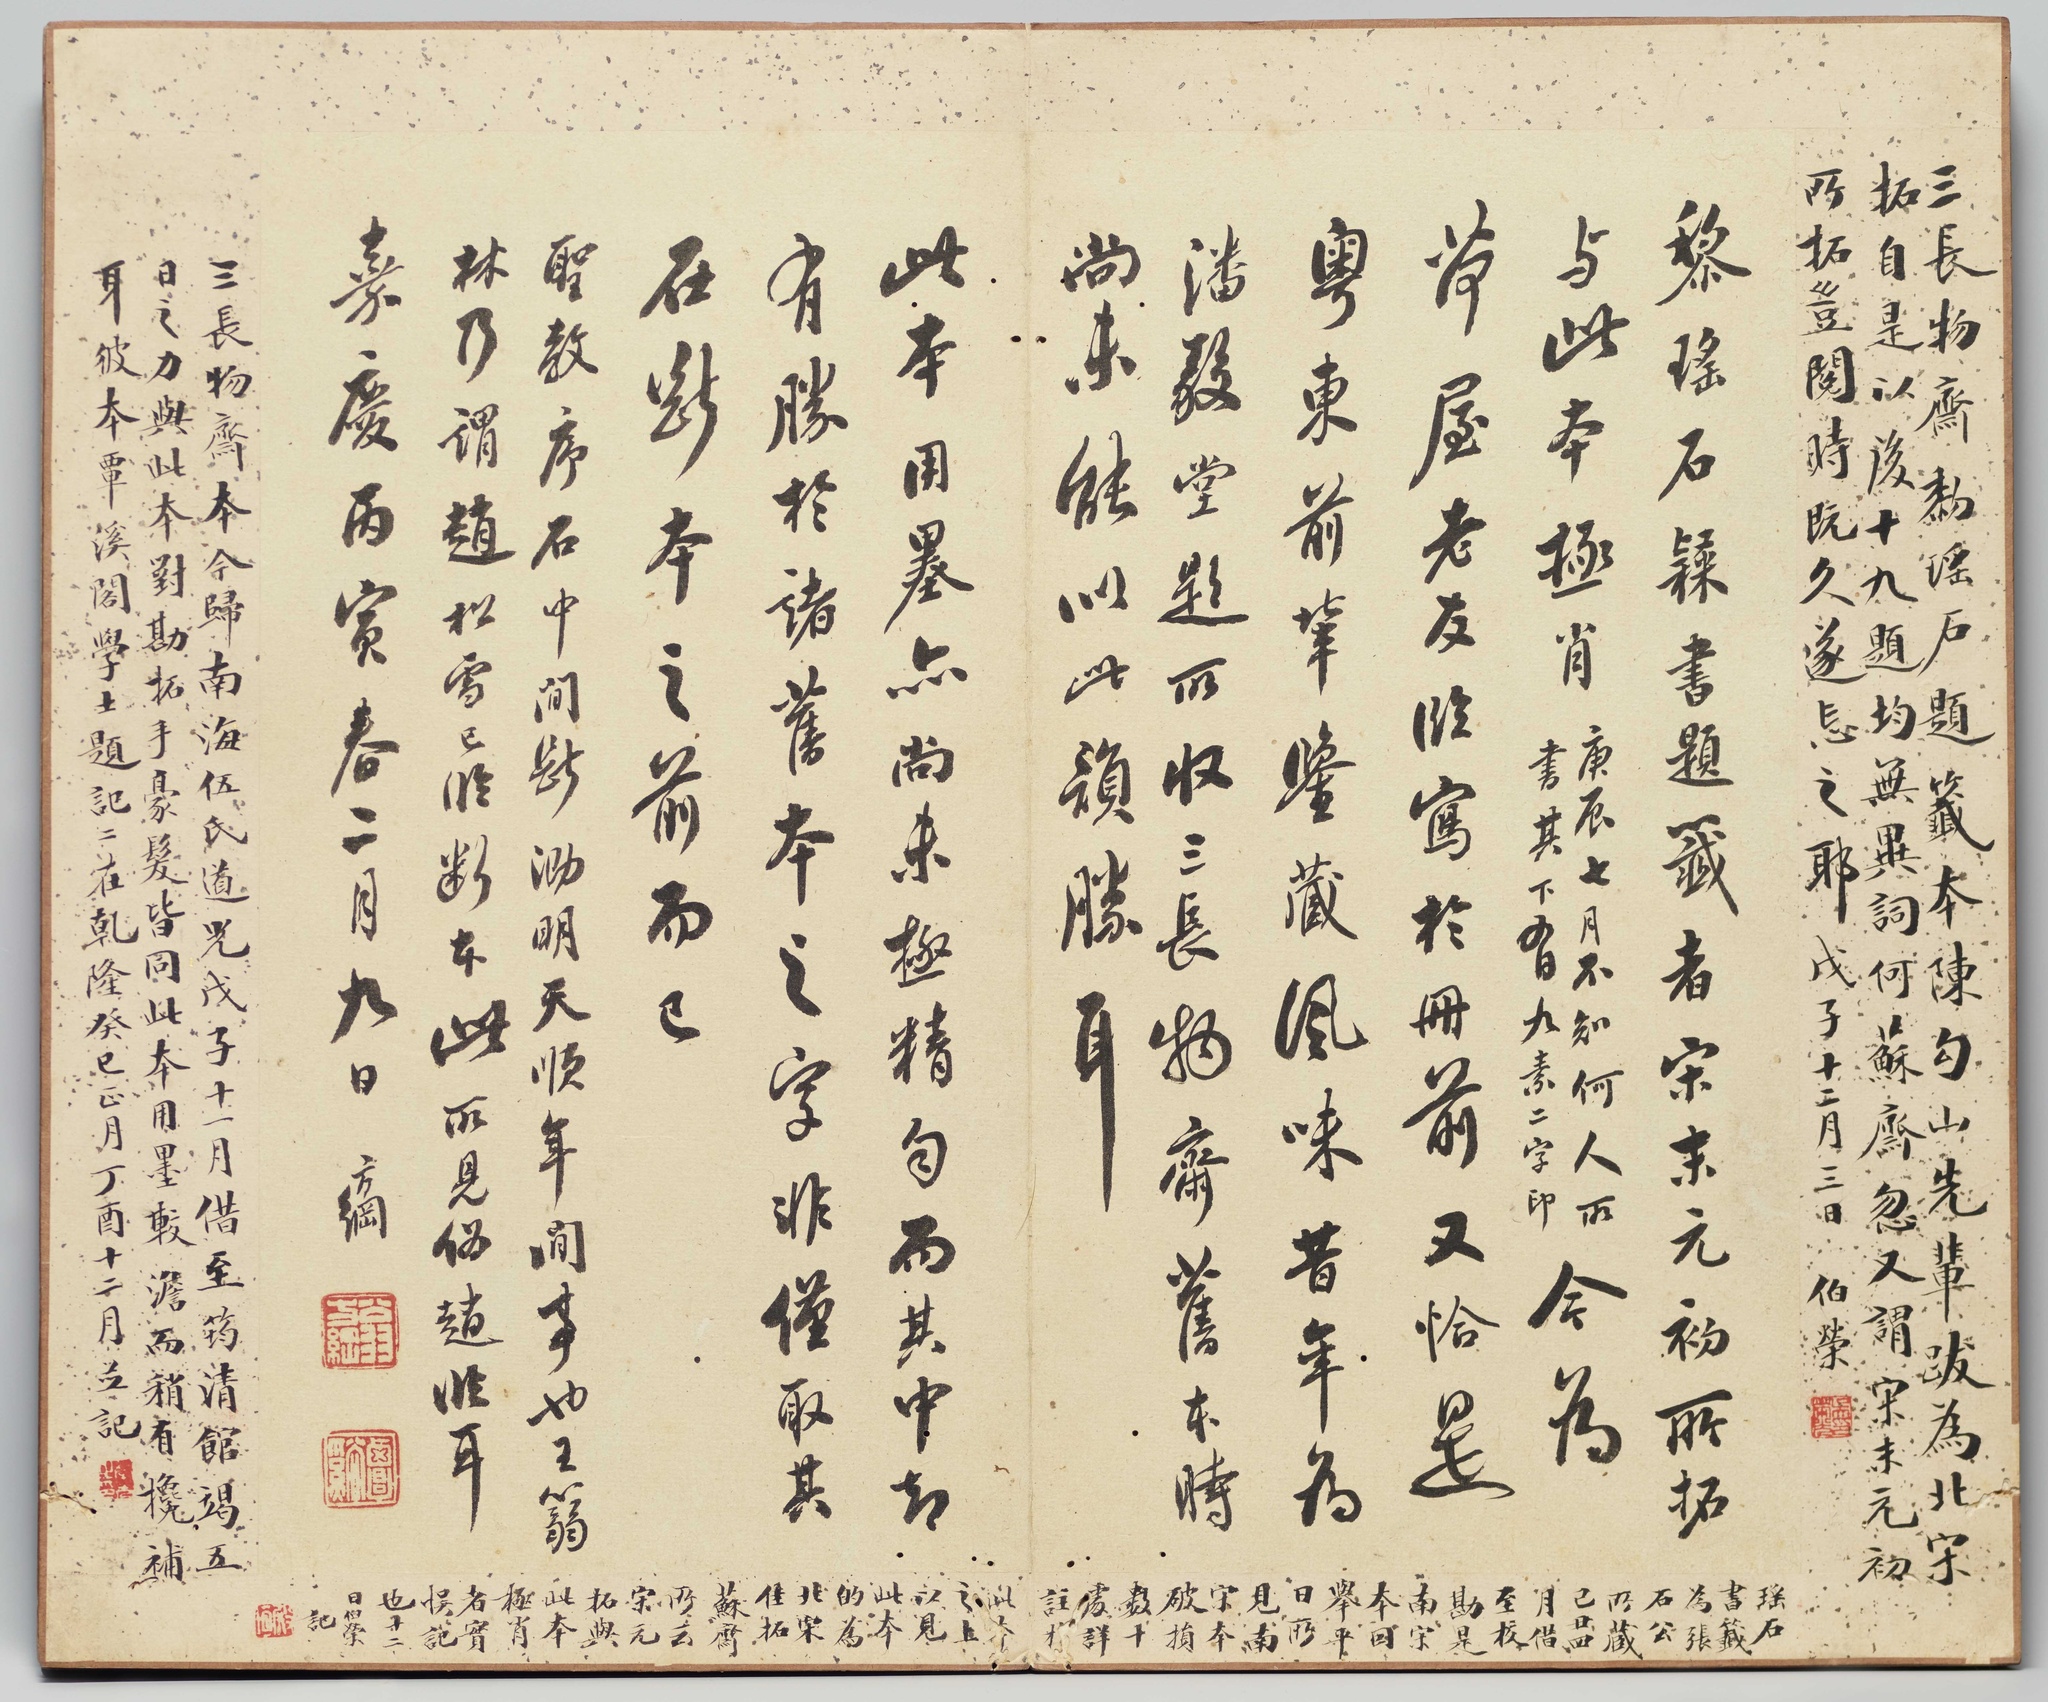 三長物齋勬瑶石題籤本陳勾山先輩跋為北宋
拓自是以後十九題均無異詞何蘇齋忽又謂宋末元初
所拓豈閱時既久遂忘之耶戊子十二月三日 伯榮
黎瑤石隸書題籤者宋末元初所拓
与此本極肖
庚辰七月不知何人所
書其下有九素二字印
今為
荷屋老友臨寫於冊前又恰是
粵東前輩鑒藏風味昔年為
潘毅堂題所收三長物齋舊本時
尚未能以此韻勝耳
此本用墨亦尚未極精勻而其中却
有勝於諸舊本之字非僅取其
在斷本之前而已
聖教序石中間斷泐明天順年間事也王翁
林乃謂趙松雪已臨斷本此所見俗趙臨耳
嘉慶丙寅春二月九日 方綱
三長物齋本今歸南海伍氏道光戊子十一月借至筠清館竭五
日之力與此本對勘拓手豪髮皆同此本用墨較澹而稍有攙補
耳彼本覃溪閣學士題記二在乾隆癸巳正月丁酉十二月并記
瑤石
書籤
為張
石公
所藏
己丑四
月借
至校
勘是
南宋
本回
舉平
日所
見南
宋本
破損
數十
處詳
註於
此本
之上
以見
此本
的為
北宋
佳拓
蘇齋
所云
宋元
拓與
此本
極肖
者實
悞記
也十二
日伯榮
記